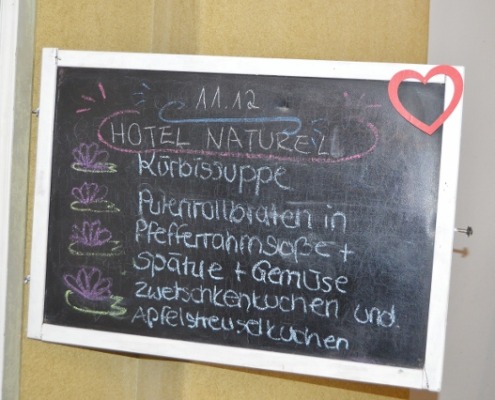 11.12
HOTEL NATUREL
Kürbissuppe
Putenrollbraten in
Pfefferrahmsoße +
Spätzle + Gemüse
Zwetschkenkuchen und
Apfelstreuselkuchen